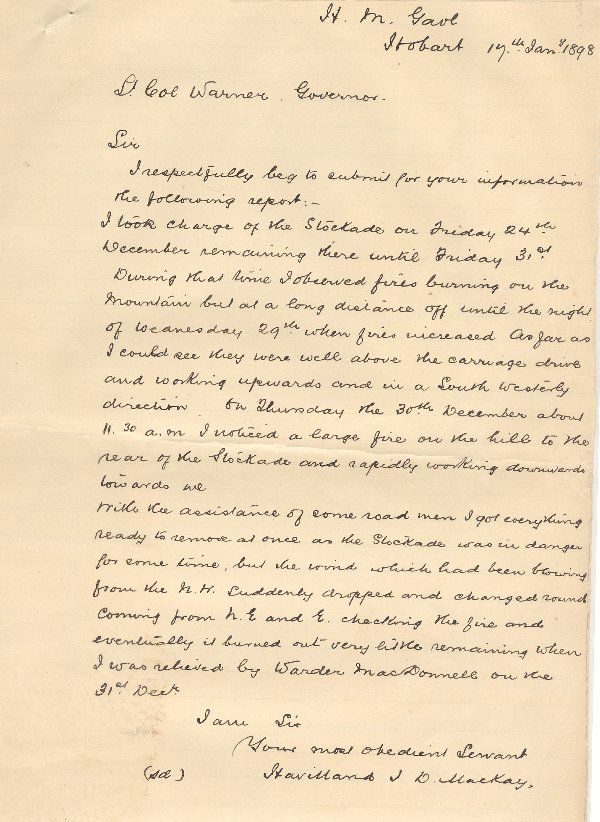 H. M. Gaol
Hobart 17th Jany 1898
Lt Col Warner. Governor.
Sir
I respectfully beg to submit for your information
the following report:-
I took charge of the Stockade on Friday 24th
December remaining there until Friday 31st.
During that time I observed fires burning on the
Mountain but at a long distance off until the night
of Wednesday 29th when fires increased As far as
I could see they were well above the carriage drive
and working upwards and in a South Westerly
direction. On Thursday the 30th December about
11.30 a.m I noticed a large fire on the hill to the
rear of the Stockade and rapidly working downwards
towards we
With the assistance of some road men I got everything
ready to remove at once as the Stockade was in danger
for some time, but the wind which had been blowing
from the N.W. suddenly dropped and changed round
coming from N.E and E. checking the fire and
eventually it burned out very little remaining when
I was relieved by Warder MacDonnell on the
31st Decr
I am Sir
Your most obedient Servant
(sd) Havilland J. D. Mackay.